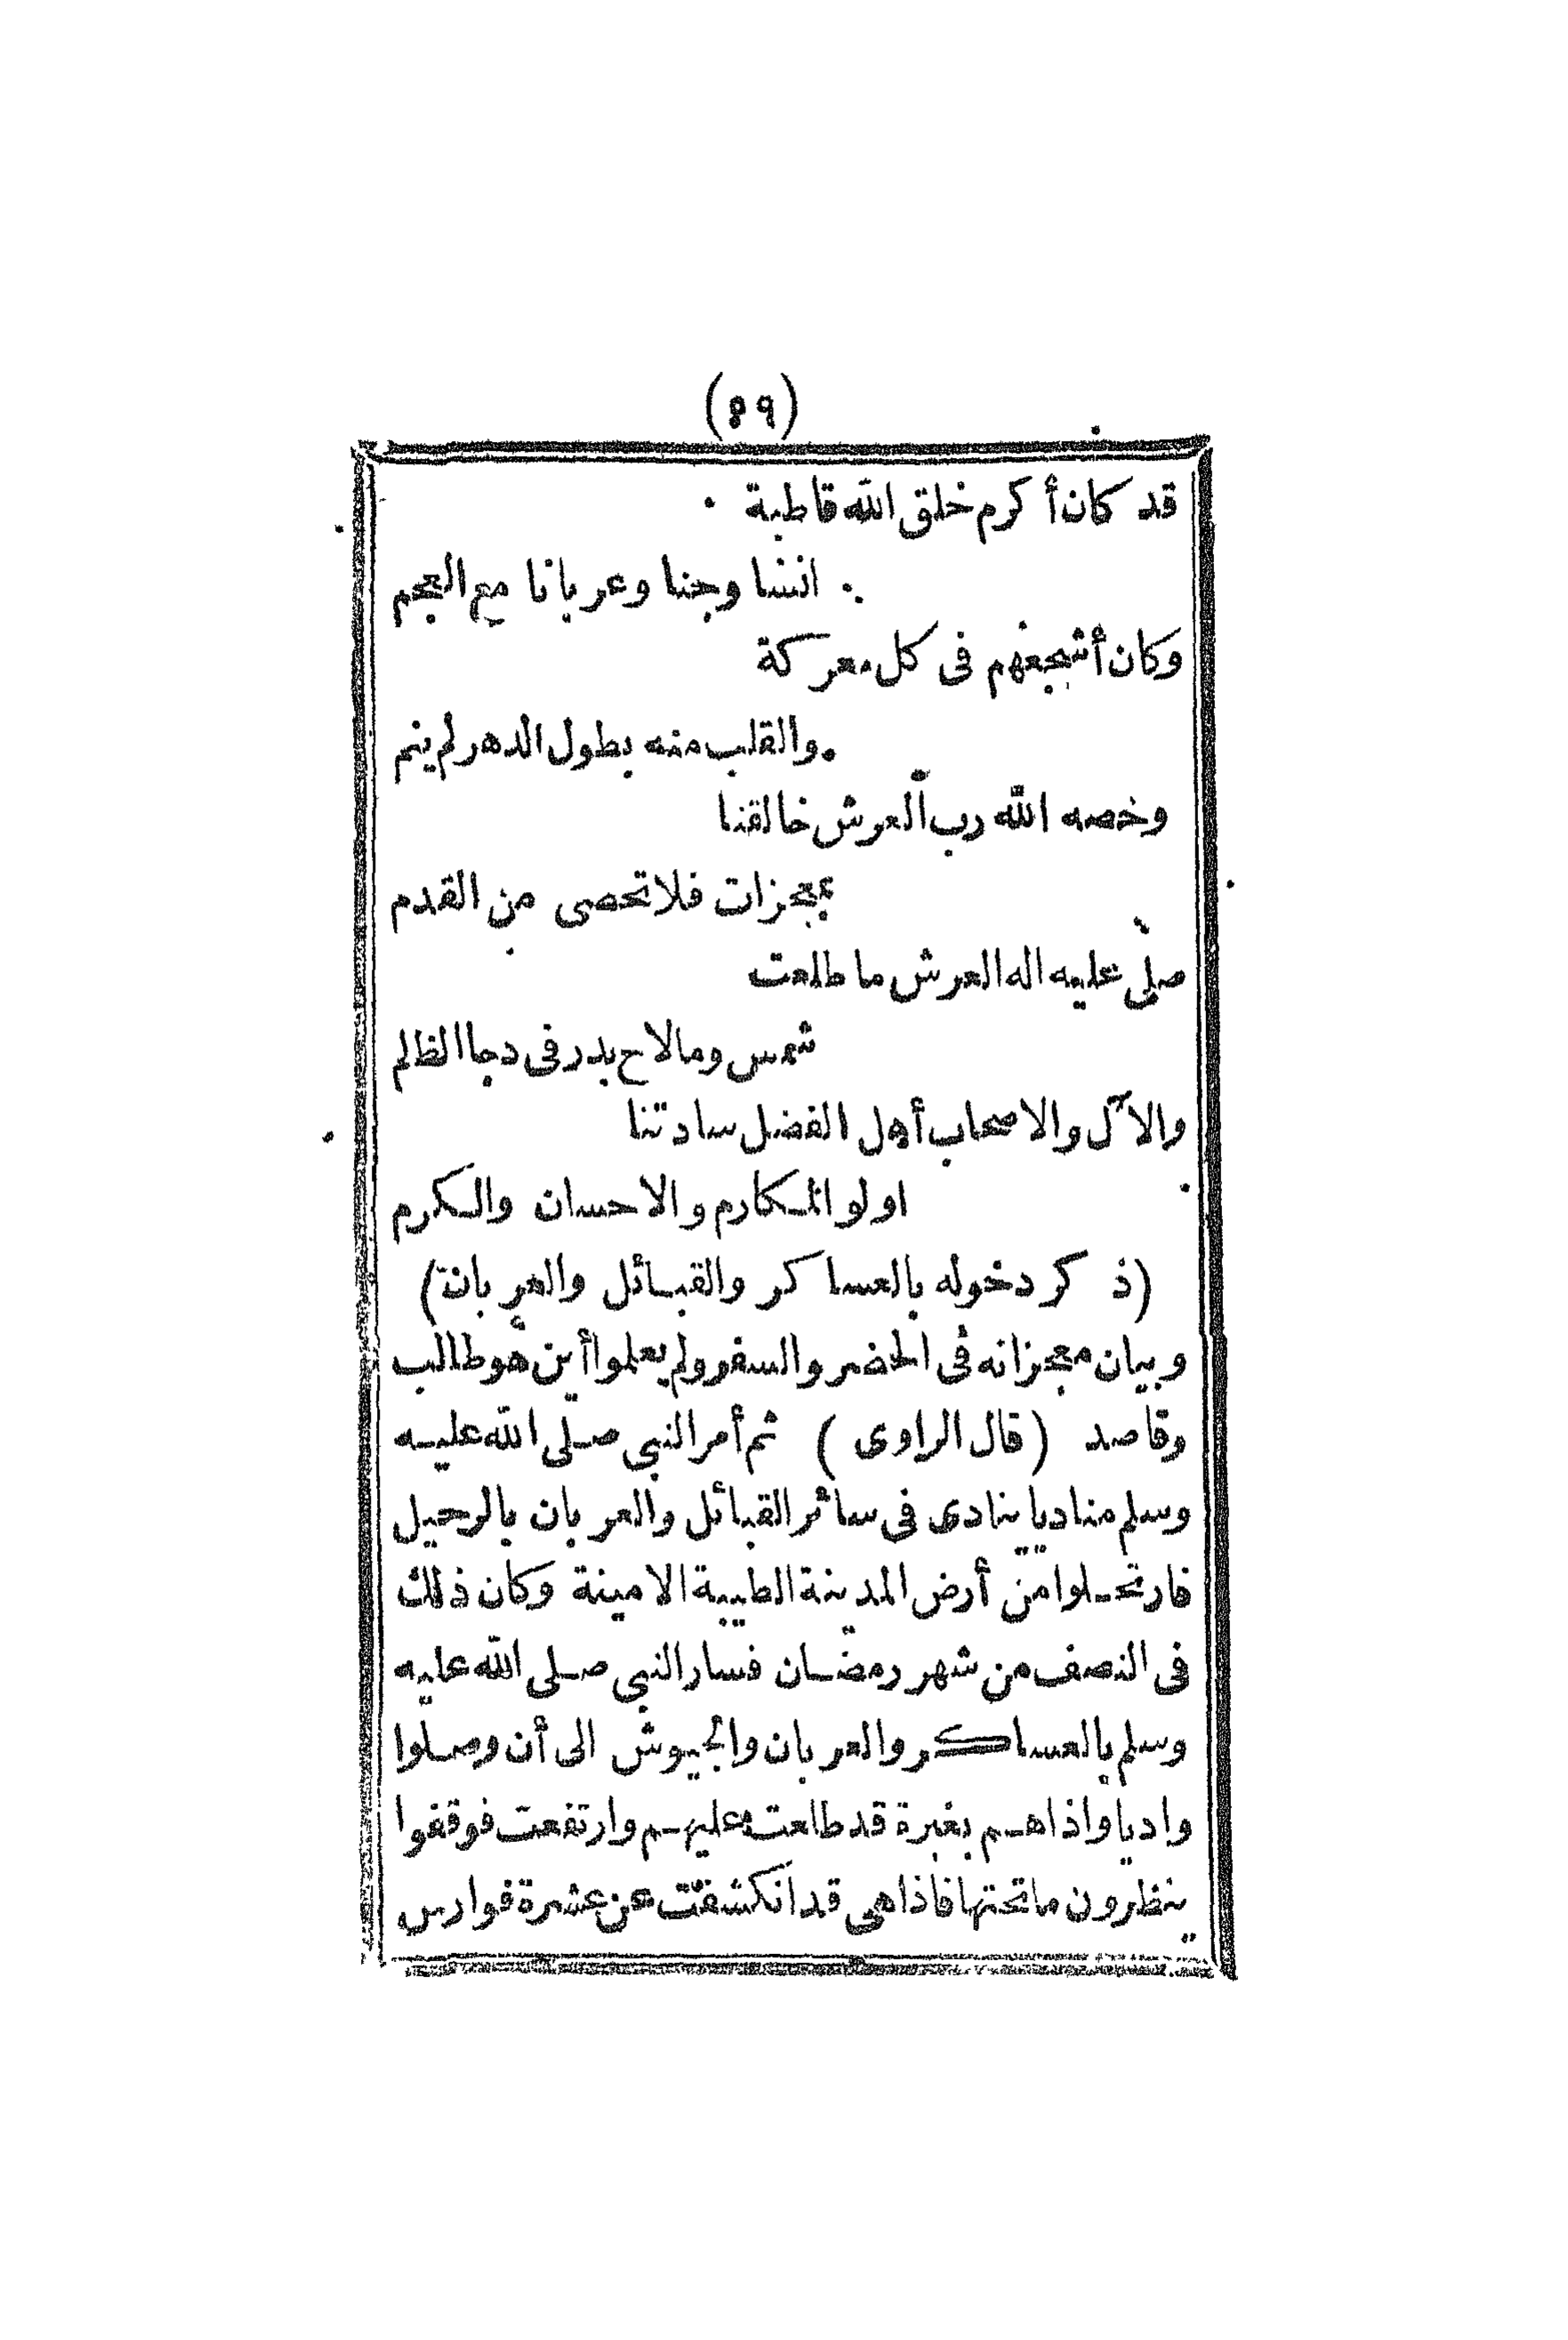 (٥٩)
قد كان أكرم خلق الله قاطبة
انسا وجنا وعربانا مع العجم
وكان أشجعهم فى كل معركة
والقلب منه بطول الدهر لم ينم
وخصه الله رب العرش خالقنا
بمعجزات فلا تحصى من القدم
صلى عليه اله العرش ما طلعت
شمس وما لاح بدر فى دجا الظلم
والآل والاصحاب أهل الفضل سادتنا
اولو المكارم والاحسان والكرم
(ذكر دخوله بالعساكر والقبائل والعربان)
وبيان معجزاته فى الحضر والسفر ولم يعلموا أين هو طالب
وقاصد (قال الراوى) ثم أمر النبى صلى الله عليه
وسلم مناديا ينادى فى سائر القبائل والعربان بالرحيل
فارتحلوا من أرض المدينة الطيبة الامينة وكان ذلك
فى النصف من شهر رمضان فسار النبى صلى الله عليه
وسلم بالعساكر والعربان والجيوش الى أن وصلوا
واديا واذاهم بغبرة قد طلعت عليهم وارتفعت فوقفوا
ينظرون ما تحتها فاذا هى قد انكشفت عن عشرة فوارس